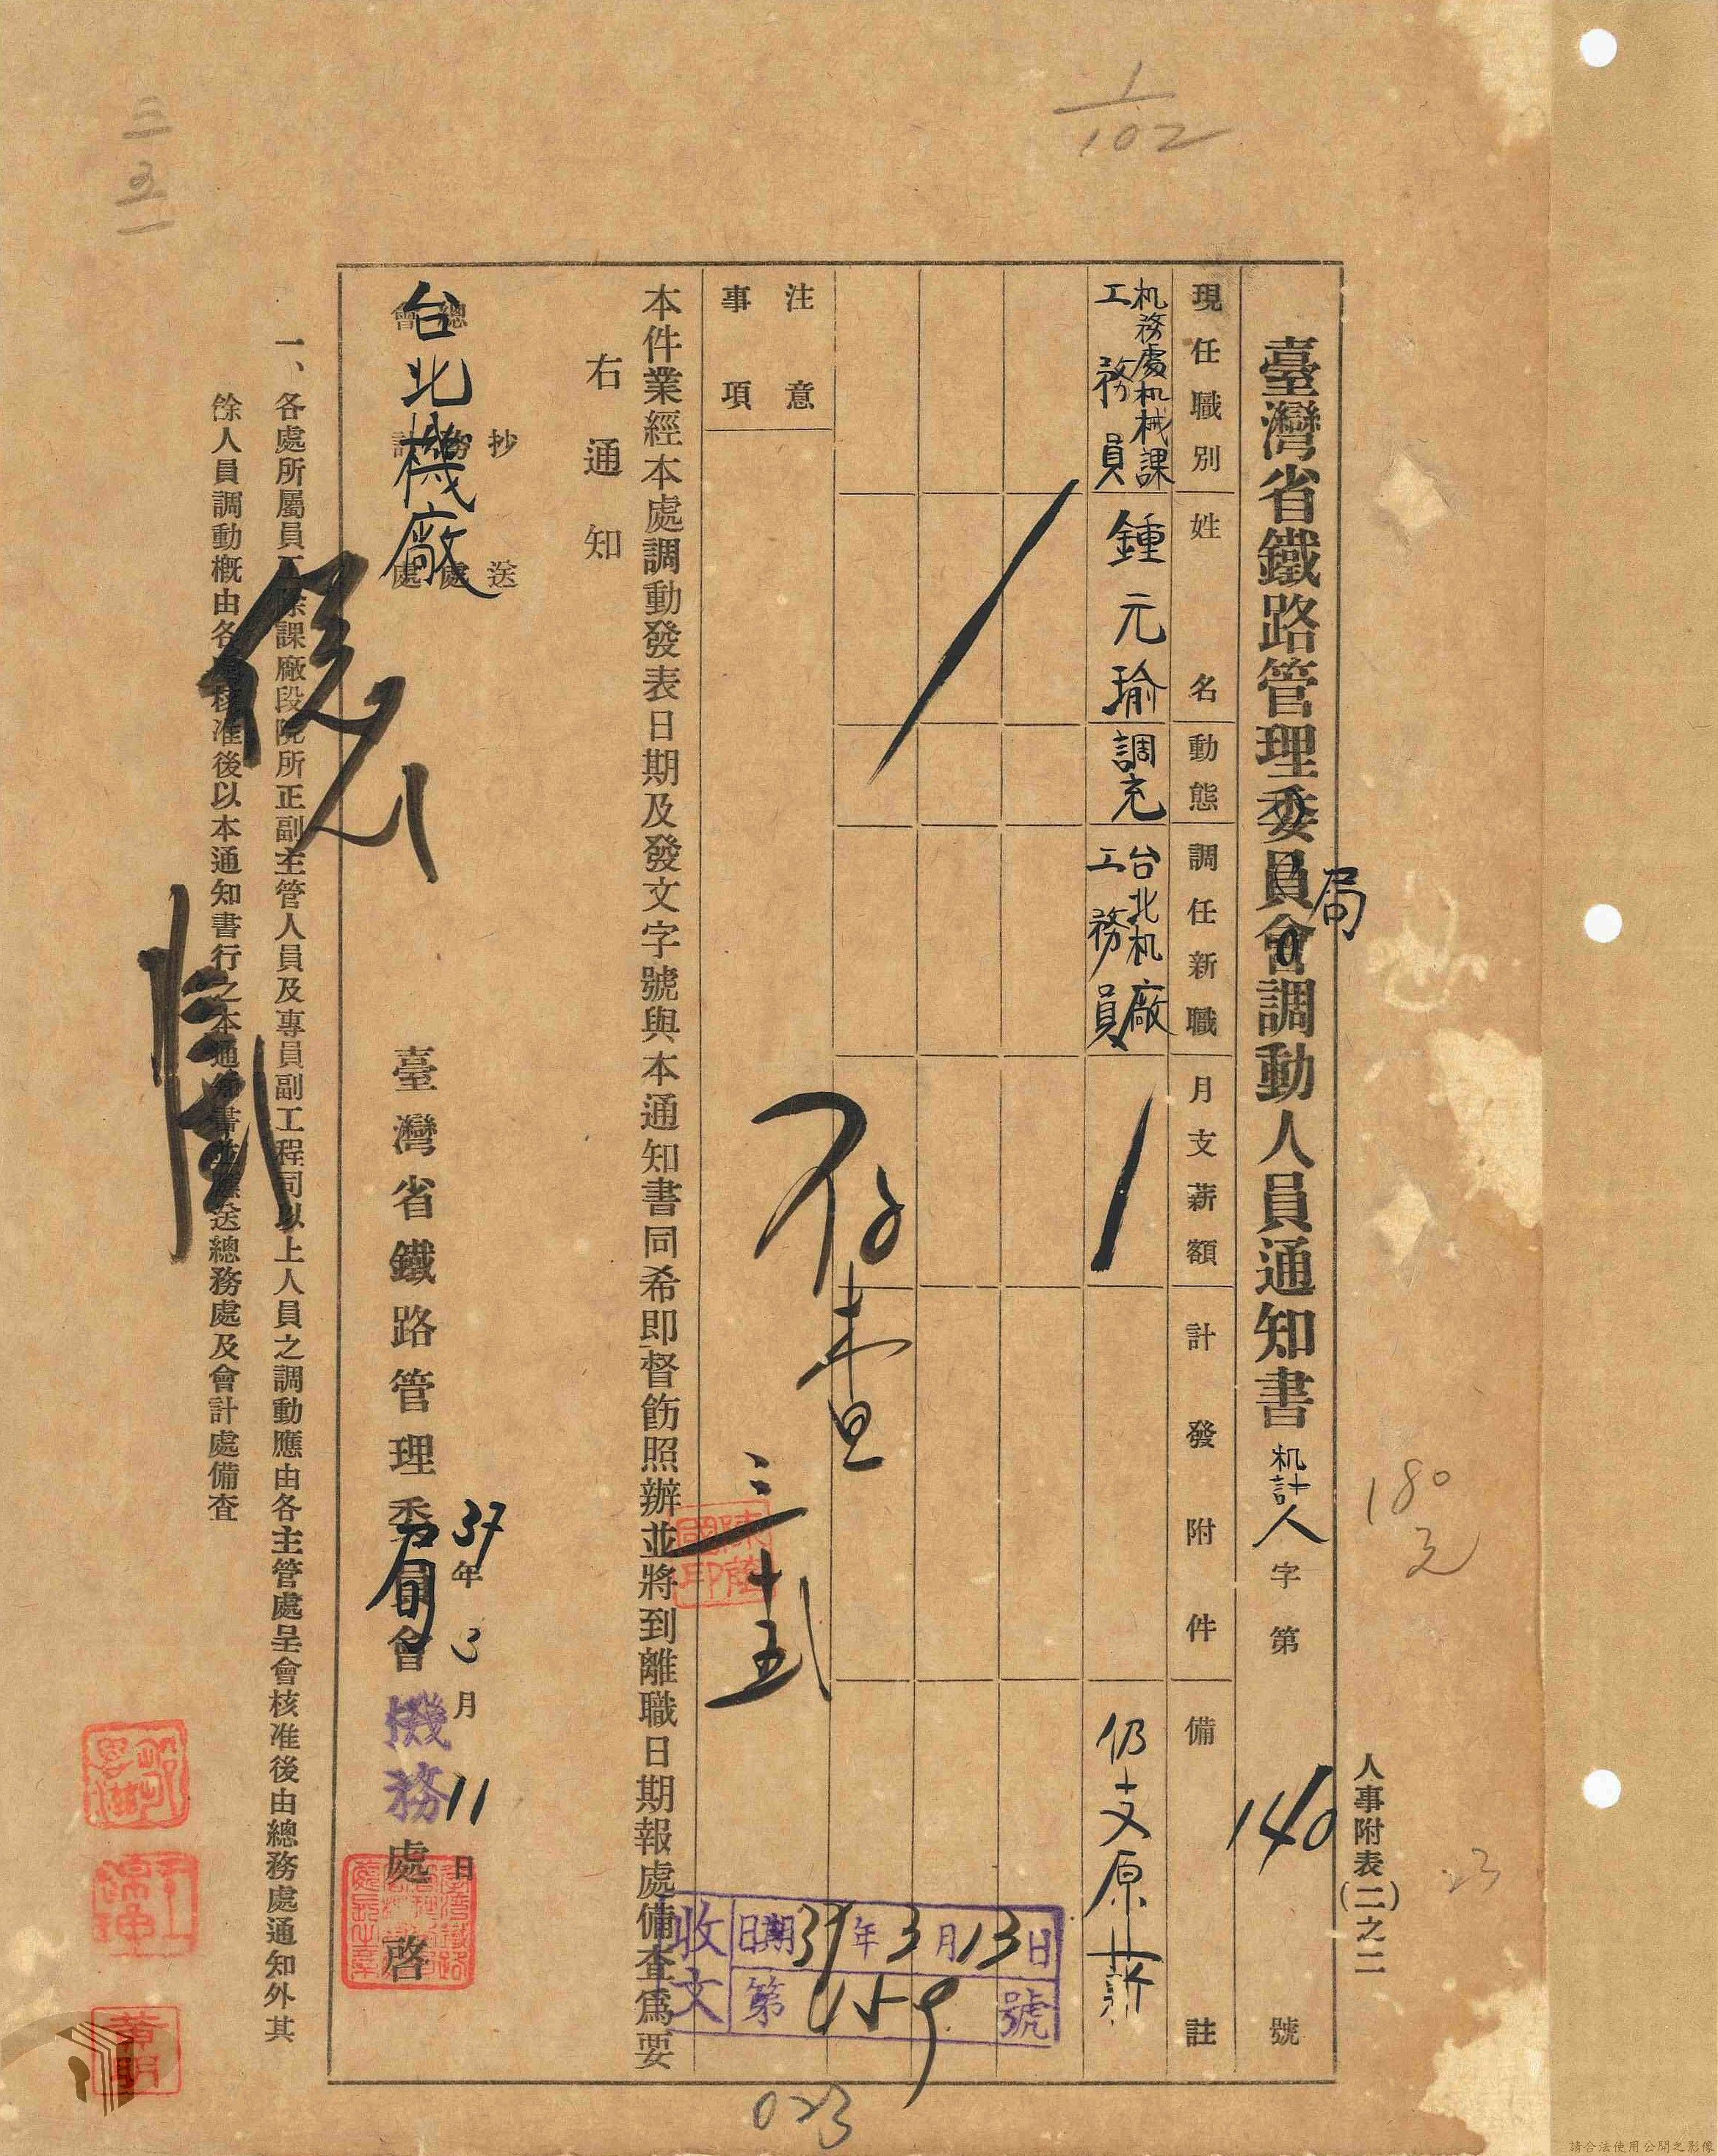 1/102
二
五
人事附表(二)之二
臺灣省鐵路管理委員會調動人員通知書 机計人字第140號
局
現任職別 姓名 動態 調任新職 月支薪額 計發附件 備註
机務處机械課
工務員
鍾元瑜
調充
台北机廠
工務員
仍支原薪
注意
事項
存查
三
十五
本件業經本處調動發表日期及發文字號與本通知書同希即督飭照辦並將到離職日期報處備查為要
右通知
抄送
總務處
會計處
台北機廠
37年3月11日
臺灣省鐵路管理委員會機務處啓
局
一、各處所屬員工除課廠段院所正副主管人員及專員副工程司以上人員之調動應由各主管處呈會核准後由總務處通知外其
餘人員調動概由各處核准後以本通知書行之本通知書並應送總務處及會計處備查
收文
日期37年3月13日
第159號
180元
23
023
請合法使用公開之影像